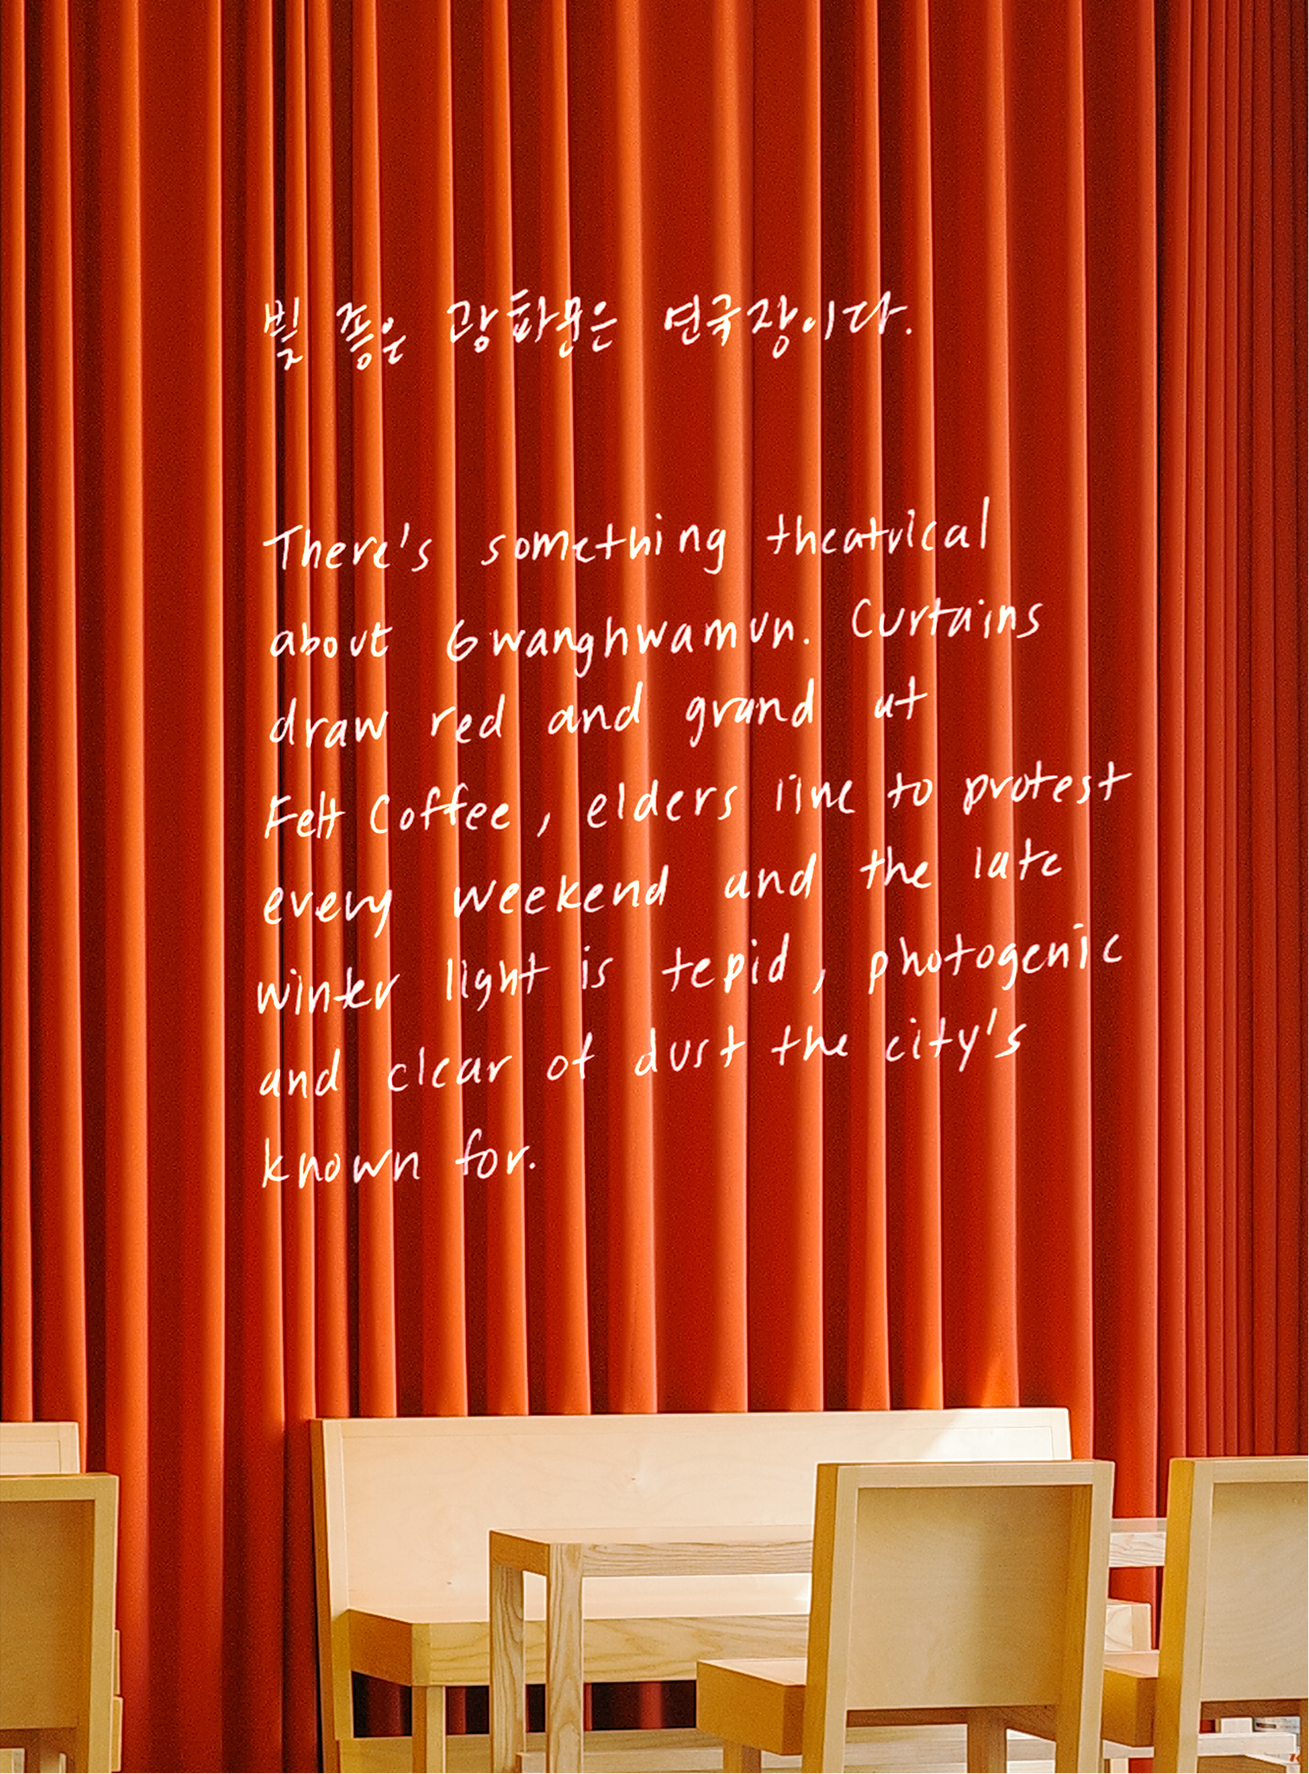 빛 좋은 광화문은 연극장이다.
There's something theatrical
about Gwanghwamun. Curtains
draw red and grand at
Felt Coffee, elders line to protest
every weekend and the late
winter light is tepid, photogenic
and clear of dust the city's
known for.